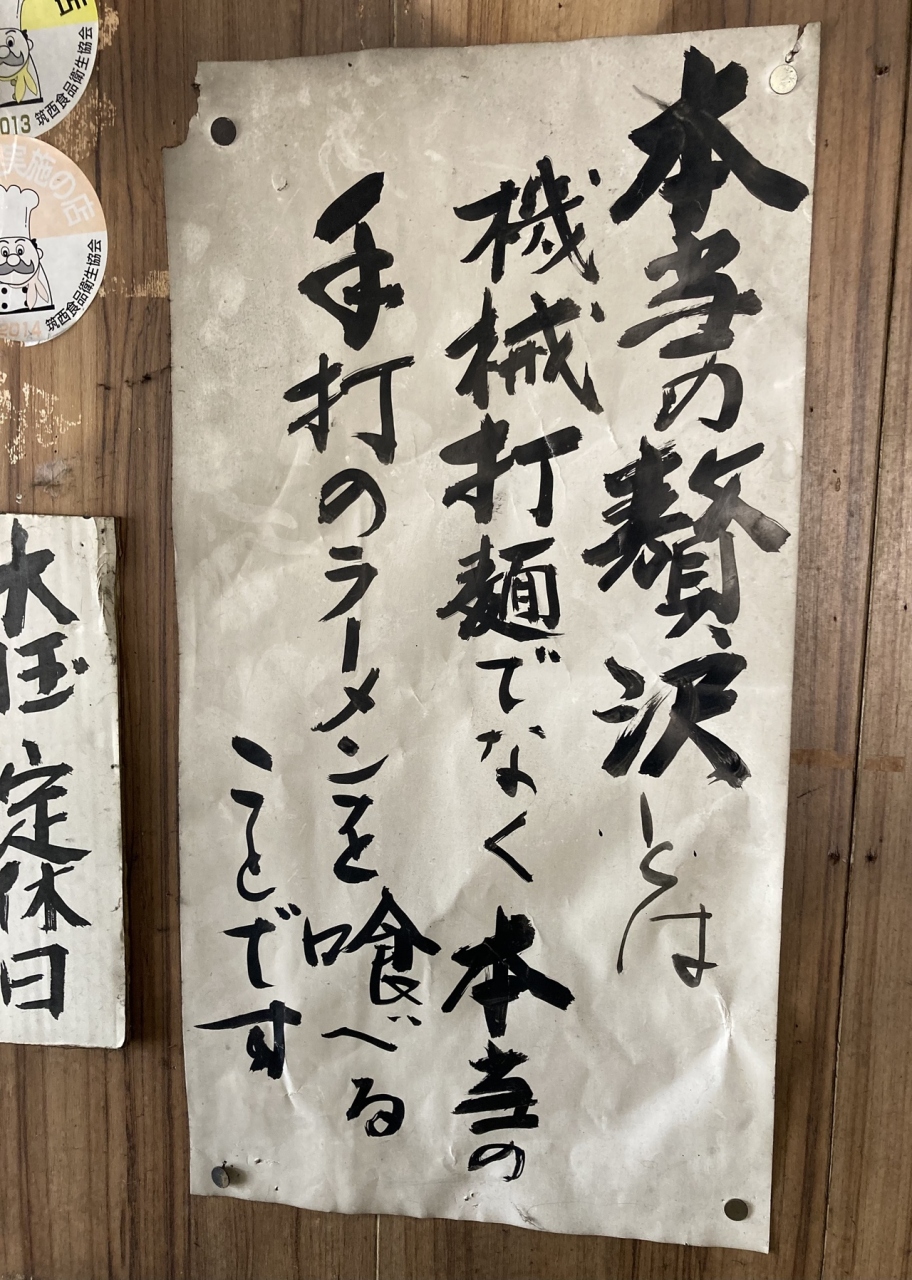 本当の贅沢とは
機械打麺でなく本当の
手打のラーメンを喰べる
ことです
定休日
店
2013
筑西食品衛生協会
実施の店
2014
筑西食品衛生協会